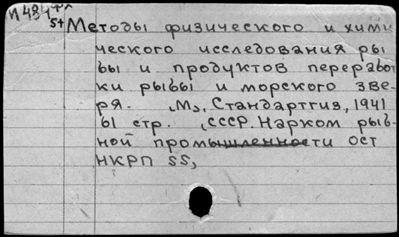 И484
st Методы физического и хими
ческого исследования ры
бы и продуктов переработ
ки рыбы и морского зве-
ря. М., Стандартгиз, 1941
61 стр. (СССР. Нарком рыб-
ной промышленности ОСТ
НКРП SS,